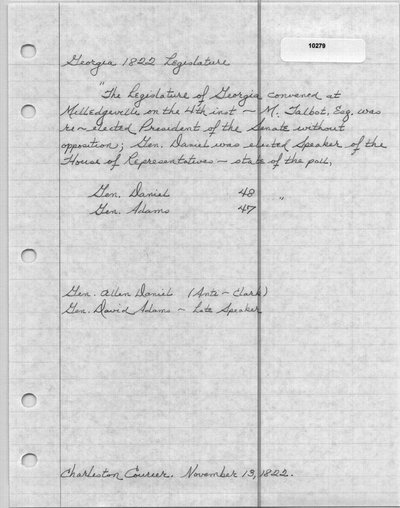 10279
Georgia 1822 Legislature
"The Legislature of Georgia convened at
Milledgeville on the 4th inst - M. Talbot, Esq. was
re-elected President of the Senate without
opposition; Gen. Daniel was elected Speaker of the
House of Representatives - state of the poll,
Gen. Daniel 48
Gen. Adams 47 "
Gen. Allen Daniel (Anti-Clark)
Gen. David Adams - Late Speaker
Charleston Courier. November 13, 1822.